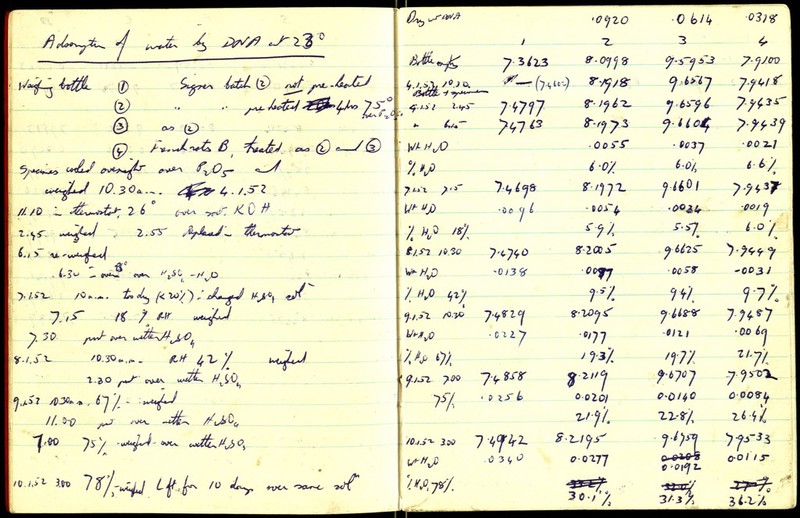 Adsorption of water by DNA at 23°
Weighing bottle ① Signer batch ② not pre-heated
② " " preheated 4 hrs 75° over P₂O₅
③ as ②
④ B, treated as ② and ③
Specimens cooled overnight over P₂O₅ and
weighed 10.30 a.m. 4.1.52
11.10 in thermostat, 26° over sat. KOH
2.45 weighed 2.55 replaced in thermostat
6.15 re-weighed
6.30 in over H₂SO₄-H₂O
7.1.52 10 a.m. too dry (<20%) : changed H₂SO₄ solⁿ
7.15 18% RH weighed
7.30 put over wetter H₂SO₄
8.1.52 10.30 a.m. RH 42% weighed
2.30 put over wetter H₂SO₄
9.1.52 10.30 a.m. 67% weighed
11.00 put over wetter H₂SO₄
7.00 75% weighed over wetter H₂SO₄
10.1.52 300 78% weighed Left for 10 days over same solⁿ
Dry wt DNA .0920 .0614 .0318
1 2 3 4
Bottle 7.3623 8.0998 9.5953 7.9100
4.1.52 10.30 — 8.1918 9.6567 7.9418
Bottle + specimen
4.1.52 2.45 7.4797 8.1962 9.6596 7.9435
" 6.15 7.4763 8.1973 9.6604 7.9439
Wt H₂O .0055 .0037 .0021
% H₂O 6.0% 6.0% 6.6%
7.1.52 7.5 7.4698 8.1972 9.6601 7.9437
Wt H₂O .0096 .0054 .0034 .0019
% H₂O 18% 5.9% 5.5% 6.0%
8.1.52 10.30 7.4740 8.2005 9.6625 7.9449
Wt H₂O .0138 .0087 .0058 .0031
% H₂O 42% 9.5% 9.4% 9.7%
9.1.52 10.30 7.4829 8.2095 9.6688 7.9487
Wt H₂O .0227 .0177 .0121 .0069
% H₂O 67% 19.3% 19.7% 21.7%
9.1.52 700 7.4858 8.2119 9.6707 7.9502
75% .0256 0.0201 0.0140 0.0084
21.9% 22.8% 26.4%
10.1.52 300 7.4942 8.2195 9.6759 7.9533
Wt H₂O .0340 0.0277 0.0205 0.0115
0.0192
% H₂O, 78%
30.1% 31.3% 36.2%